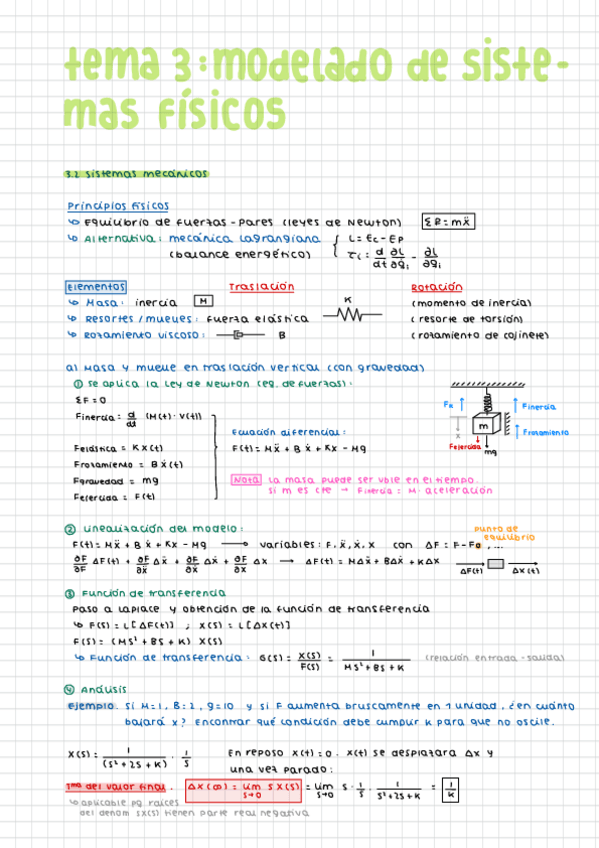 tema 3: modelado de siste-
mas físicos
3.2 sistemas mecánicos
Principios físicos
↳ Equilibrio de fuerzas - pares (leyes de Newton) ΣR = mẍ
↳ Alternativa: mecánica lagrangiana { L = Ec - Ep
(balance energético) τi = d/dt ∂L/∂q̇i - ∂L/∂qi
Elementos Traslación Rotación
↳ Masa: inercia M (momento de inercia)
↳ Resortes / muelles: fuerza elástica K (resorte de torsión)
↳ Rozamiento viscoso: B (rozamiento de cojinete)
a) Masa y muelle en traslación vertical (con gravedad)
① Se aplica la ley de Newton (eq. de fuerzas):
ΣF = 0
Finercia = d/dt (M(t) · V(t))
Felástica = K x(t)
Frozamiento = B ẋ(t)
Fgravedad = mg
Fejercida = F(t)
Ecuación diferencial:
F(t) = Mẍ + Bẋ + Kx - Mg
Nota La masa puede ser vble en el tiempo.
Si m es cte → Finercia = M · aceleración
Fk Finercia
x m Frozamiento
Fejercida mg
② Linealización del modelo:
F(t) = Mẍ + Bẋ + Kx - Mg → variables: F, ẍ, ẋ, x con ΔF = F - F0, ...
punto de
equilibrio
∂F/∂F ΔF(t) + ∂F/∂ẍ Δẍ + ∂F/∂ẋ Δẋ + ∂F/∂x Δx → ΔF(t) = MΔẍ + BΔẋ + KΔx
ΔF(t) Δx(t)
③ Función de transferencia
Paso a Laplace y obtención de la función de transferencia
↳ F(s) = L[ΔF(t)] ; X(s) = L[Δx(t)]
F(s) = (Ms² + Bs + K) X(s)
↳ Función de transferencia: G(s) = X(s)/F(s) = 1/(Ms² + Bs + K) (relación entrada-salida)
④ Análisis
Ejemplo. Si M=1, B=2, g=10 y si F aumenta bruscamente en 1 unidad, ¿en cuánto
bajará x? Encontrar qué condición debe cumplir K para que no oscile.
X(s) = 1/(s² + 2s + K) · 1/s En reposo x(t) = 0. x(t) se desplazará Δx y
una vez parado:
Tma del valor final. Δx(∞) = lim s→0 s X(s) = lim s→0 s · 1/s · 1/(s² + 2s + K) = 1/K
↳ aplicable pq raíces
del denom sX(s) tienen parte real negativa